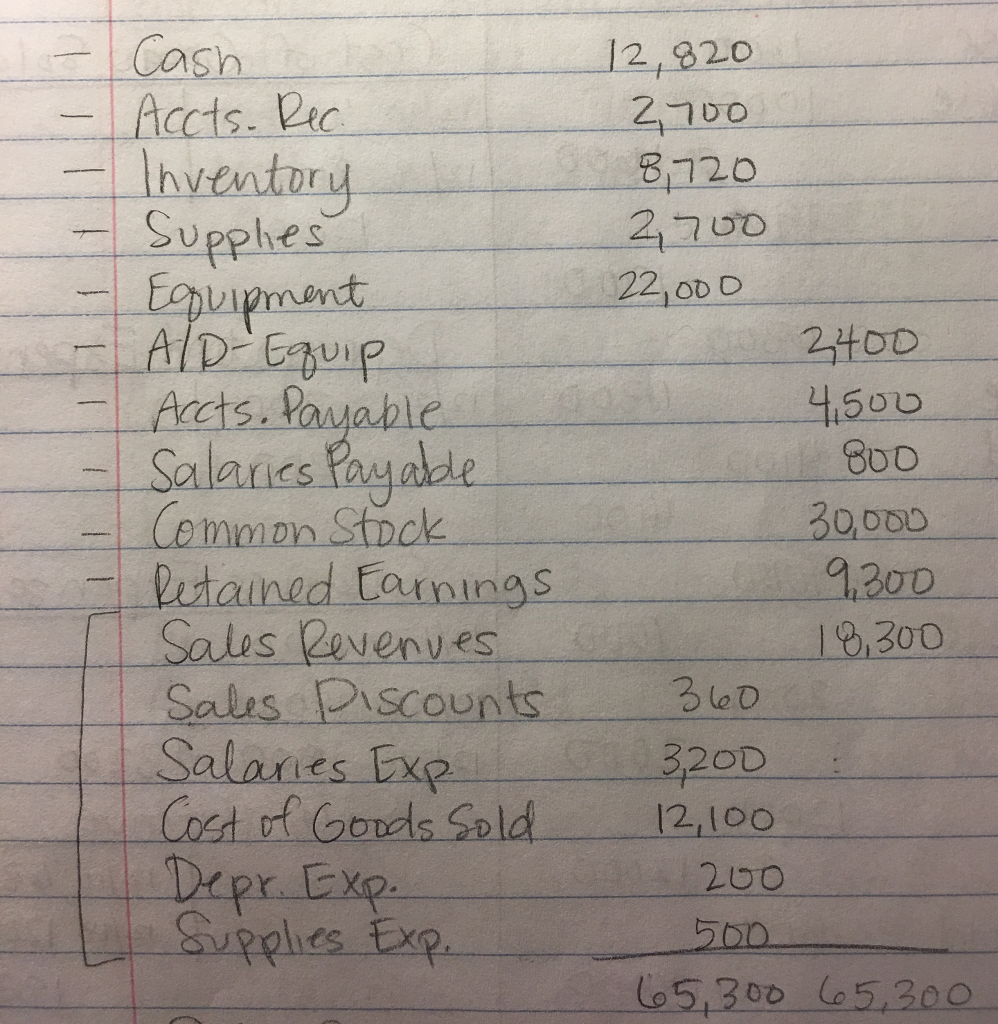 - Cash 12,820
- Accts. Rec. 2,700
- Inventory 8,720
- Supplies 2,700
- Equipment 22,000
- A/D-Equip 2,400
- Accts. Payable 4,500
- Salaries Payable 800
- Common Stock 30,000
- Retained Earnings 9,300
Sales Revenues 18,300
Sales Discounts 360
Salaries Exp. 3,200
Cost of Goods Sold 12,100
Depr. Exp. 200
Supplies Exp. 500
65,300 65,300